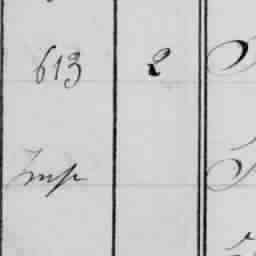 613 2
Imp